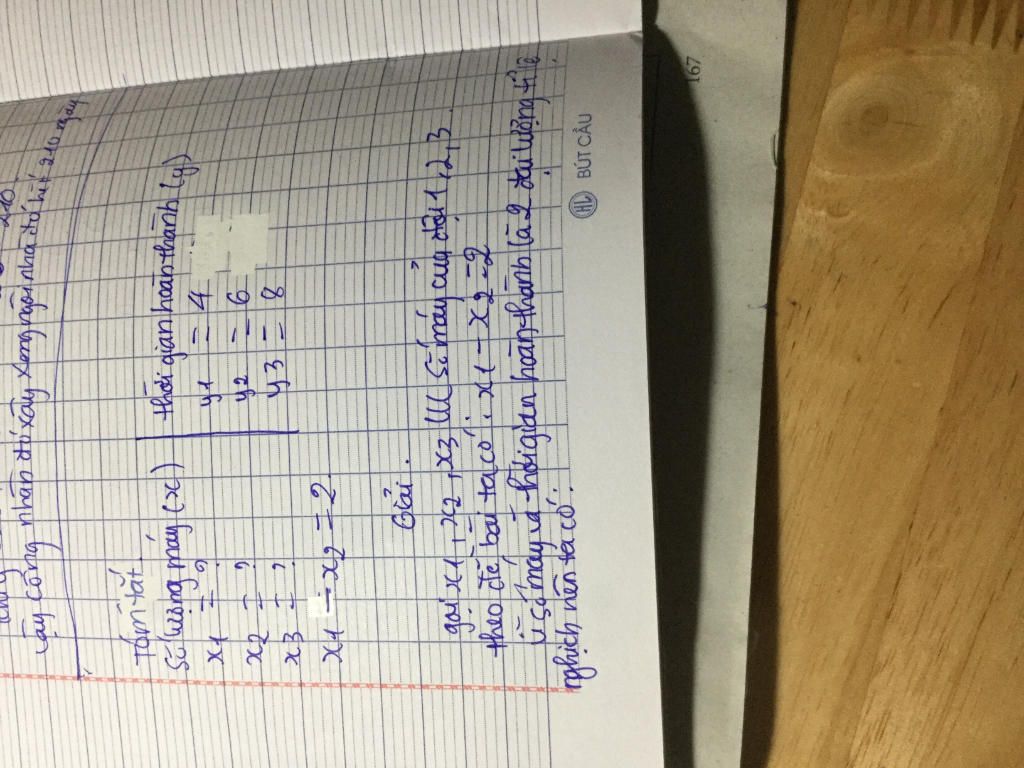 210
vậy công nhân đó xây xong ngôi nhà đó hết 210 ngày
Tóm tắt
Số lượng máy (x) thời gian hoàn thành (y)
x1 = ? y1 = 4
x2 = ? y2 = 6
x3 = ? y3 = 8
x1 - x2 = 2
Giải.
gọi x1, x2, x3 lll số máy của đội 1, 2, 3.
theo đề bài ta có: x1 - x2 = 2
Vì số máy và thời gian hoàn thành là 2 đại lượng tỉ lệ
nghịch nên ta có:
BÚT CẦU
167